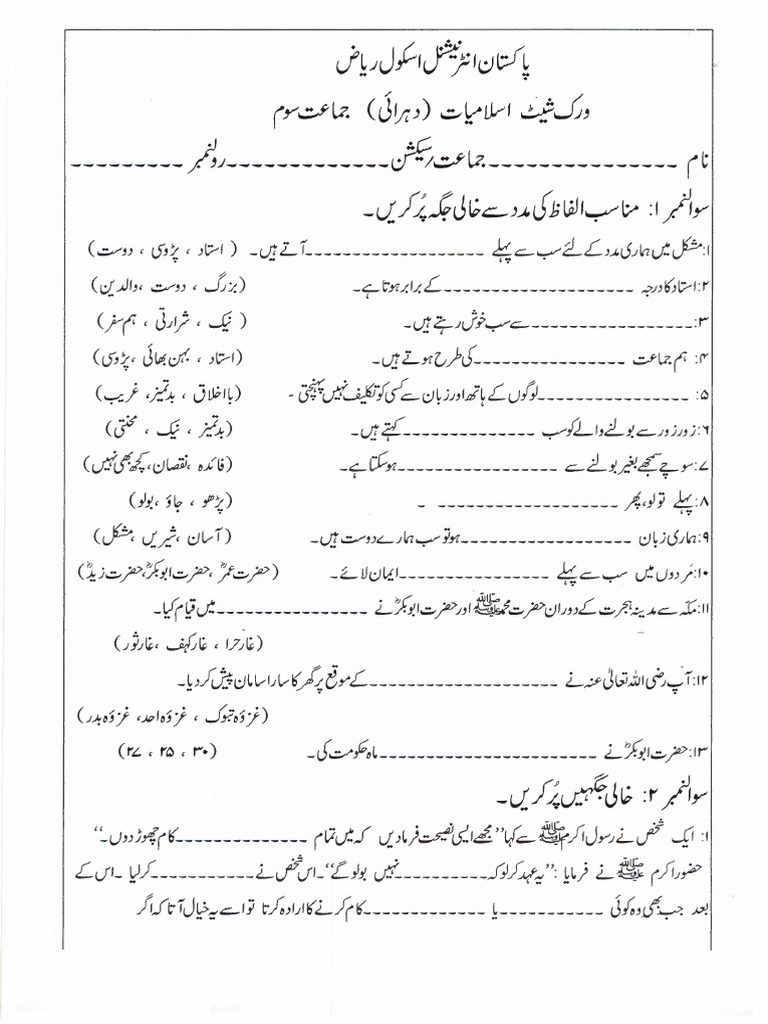 پاکستان انٹرنیشنل اسکول ریاض
ورک شیٹ اسلامیات (دہرائی) جماعت سوم
نام ---------------جماعت رسیکشن-------------رولنمبر ---------
سوالنمبر ۱: مناسب الفاظ کی مدد سے خالی جگہ پُر کریں۔
۱:مشکل میں ہماری مدد کے لئے سب سے پہلے ------------------آتے ہیں۔ (استاد ، پڑوسی ، دوست)
۲:استاد کا درجہ -------------------کے برابر ہوتا ہے۔ (بزرگ ، دوست ،والدین)
۳:-----------------سے سب خوش رہتے ہیں۔ (نیک ، شرارتی ، ہم سفر)
۴: ہم جماعت ---------------کی طرح ہوتے ہیں۔ (استاد ، بہن بھائی ،پڑوسی)
۵: ---------------لوگوں کے ہاتھ اور زبان سے کسی کو تکلیف نہیں پہنچتی ۔ (بااخلاق ، بدتمیز، غریب)
۶:زور زور سے بولنے والے کو سب --------------کہتے ہیں۔ (بدتمیز ، نیک ، محنتی)
۷:سوچے سمجھے بغیر بولنے سے ----------------ہو سکتا ہے۔ (فائدہ ،نقصان،کچھ بھی نہیں)
۸:پہلے تولو،پھر ------------------ ۔ (پڑھو ، جاؤ ،بولو)
۹:ہماری زبان -----------------ہو تو سب ہمارے دوست ہیں۔ (آسان ،شیریں ،مشکل)
۱۰:مَردوں میں سب سے پہلے ---------------ایمان لائے۔ (حضرت عمرؓ ،حضرت ابوبکرؓ،حضرت زیدؓ)
۱۱:مکّہ سے مدینہ ہجرت کے دوران حضرت محمدﷺ اور حضرت ابوبکرؓ نے ---------------میں قیام کیا۔
(غارِحرا ، غارِکہف ،غارِثور)
۱۲:آپ رضی اللہ تعالیٰ عنہ نے -------------------کے موقع پر گھر کا سارا سامان پیش کر دیا۔
(غزؤہ تبوک ، غزؤہ احد، غزؤہ بدر)
۱۳:حضرت ابوبکرؓ نے ----------------------ماہ حکومت کی۔ (۳۰ ، ۲۵ ، ۲۷)
سوالنمبر ۲: خالی جگہیں پُر کریں۔
۱: ایک شخص نے رسول اکرم ﷺ سے کہا”مجھے ایسی نصیحت فرما دیں کہ میں تمام --------------کام چھوڑ دوں۔“
حضور اکرم ﷺ نے فرمایا :”یہ عہد کر لو کہ----------نہیں بولو گے“۔اس شخص نے ----------کر لیا ۔اس کے
بعد جب بھی وہ کوئی -----------یا --------------کام کرنے کا ارادہ کرتا تو اسے یہ خیال آتا کہ اگر